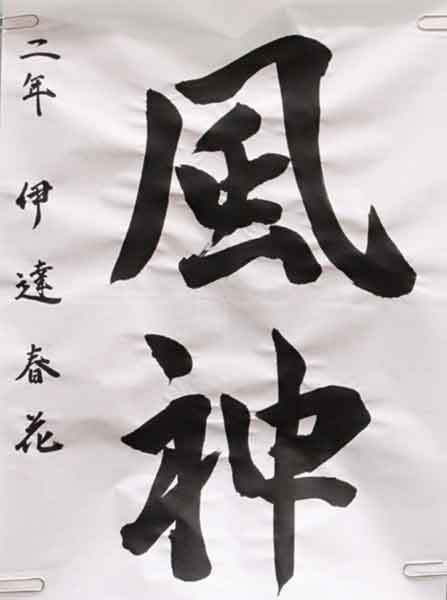 風神
二年 伊達春花